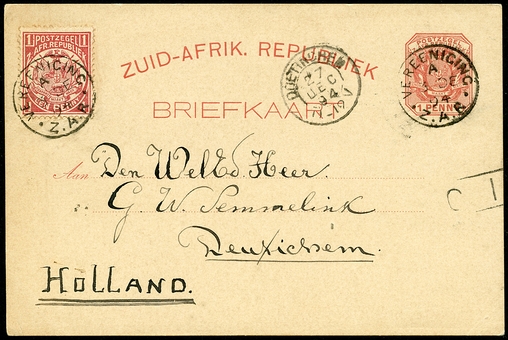 1 POSTZEGEL 1
Z. AFR. REPUBLIEK
EEN PENNY
VEREENIGING
Z.A.R.
ZUID-AFRIK. REPUBLIEK
BRIEFKAART
DOETINCHEM
7
DEC
94
POSTZEGEL
1 PENNY
VEREENIGING
94
Z.A.R.
Aan Den WelEd. Heer.
G. W. Semmelink
Deutichem.
HOLLAND.
1